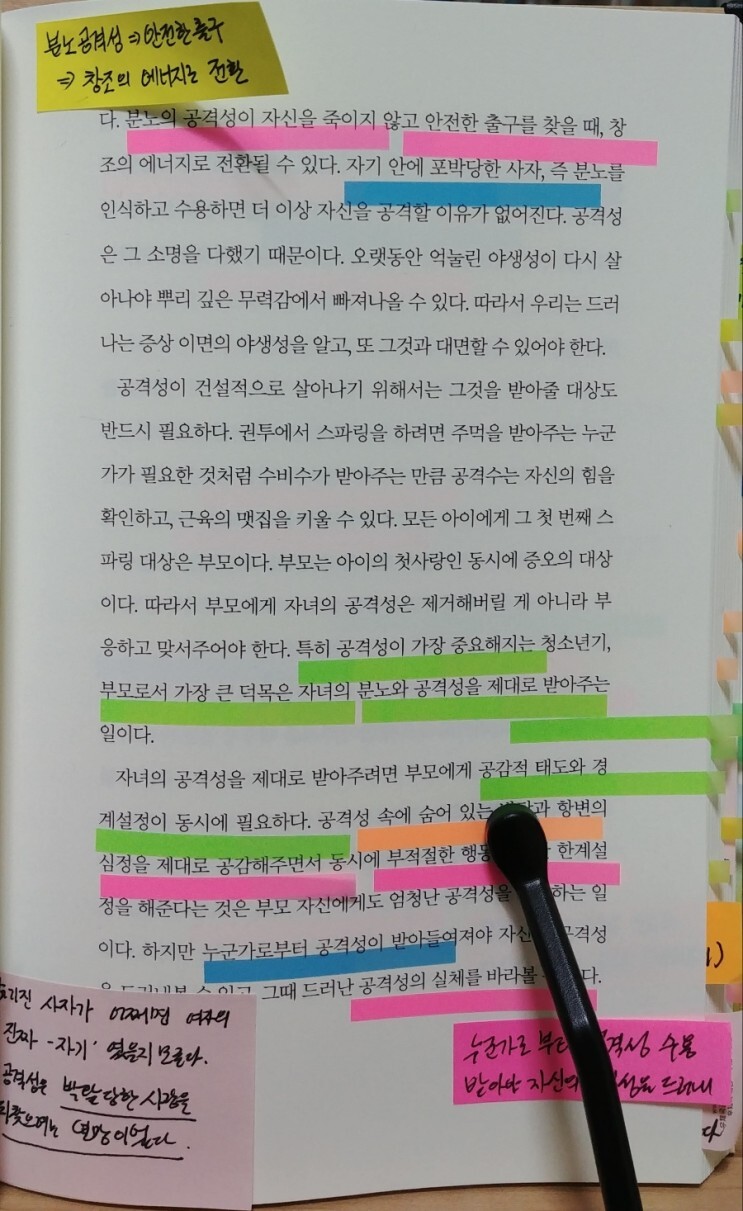 분노 공격성 ⇒ 안전한 출구
⇒ 창조의 에너지로 전환
다. 분노의 공격성이 자신을 죽이지 않고 안전한 출구를 찾을 때, 창
조의 에너지로 전환될 수 있다. 자기 안에 포박당한 사자, 즉 분노를
인식하고 수용하면 더 이상 자신을 공격할 이유가 없어진다. 공격성
은 그 소명을 다했기 때문이다. 오랫동안 억눌린 야생성이 다시 살
아나야 뿌리 깊은 무력감에서 빠져나올 수 있다. 따라서 우리는 드러
나는 증상 이면의 야생성을 알고, 또 그것과 대면할 수 있어야 한다.
공격성이 건설적으로 살아나기 위해서는 그것을 받아줄 대상도
반드시 필요하다. 권투에서 스파링을 하려면 주먹을 받아주는 누군
가가 필요한 것처럼 수비수가 받아주는 만큼 공격수는 자신의 힘을
확인하고, 근육의 맷집을 키울 수 있다. 모든 아이에게 그 첫 번째 스
파링 대상은 부모이다. 부모는 아이의 첫사랑인 동시에 증오의 대상
이다. 따라서 부모에게 자녀의 공격성은 제거해버릴 게 아니라 부
응하고 맞서주어야 한다. 특히 공격성이 가장 중요해지는 청소년기,
부모로서 가장 큰 덕목은 자녀의 분노와 공격성을 제대로 받아주는
일이다.
자녀의 공격성을 제대로 받아주려면 부모에게 공감적 태도와 경
계설정이 동시에 필요하다. 공격성 속에 숨어 있는 항변의
심정을 제대로 공감해주면서 동시에 부적절한 한계설
정을 해준다는 것은 부모 자신에게도 엄청난 공격성을 하는 일
이다. 하지만 누군가로부터 공격성이 받아들여져야 공격성
그때 드러난 공격성의 실체를 바라볼
사자가 어쩌면 여자의
진짜 -자기' 였을지 모른다.
공격성은 박탈당한 사랑을
되찾으려는 열망이었다.
누군가로 부터 수용
받아야 자신의 드러내